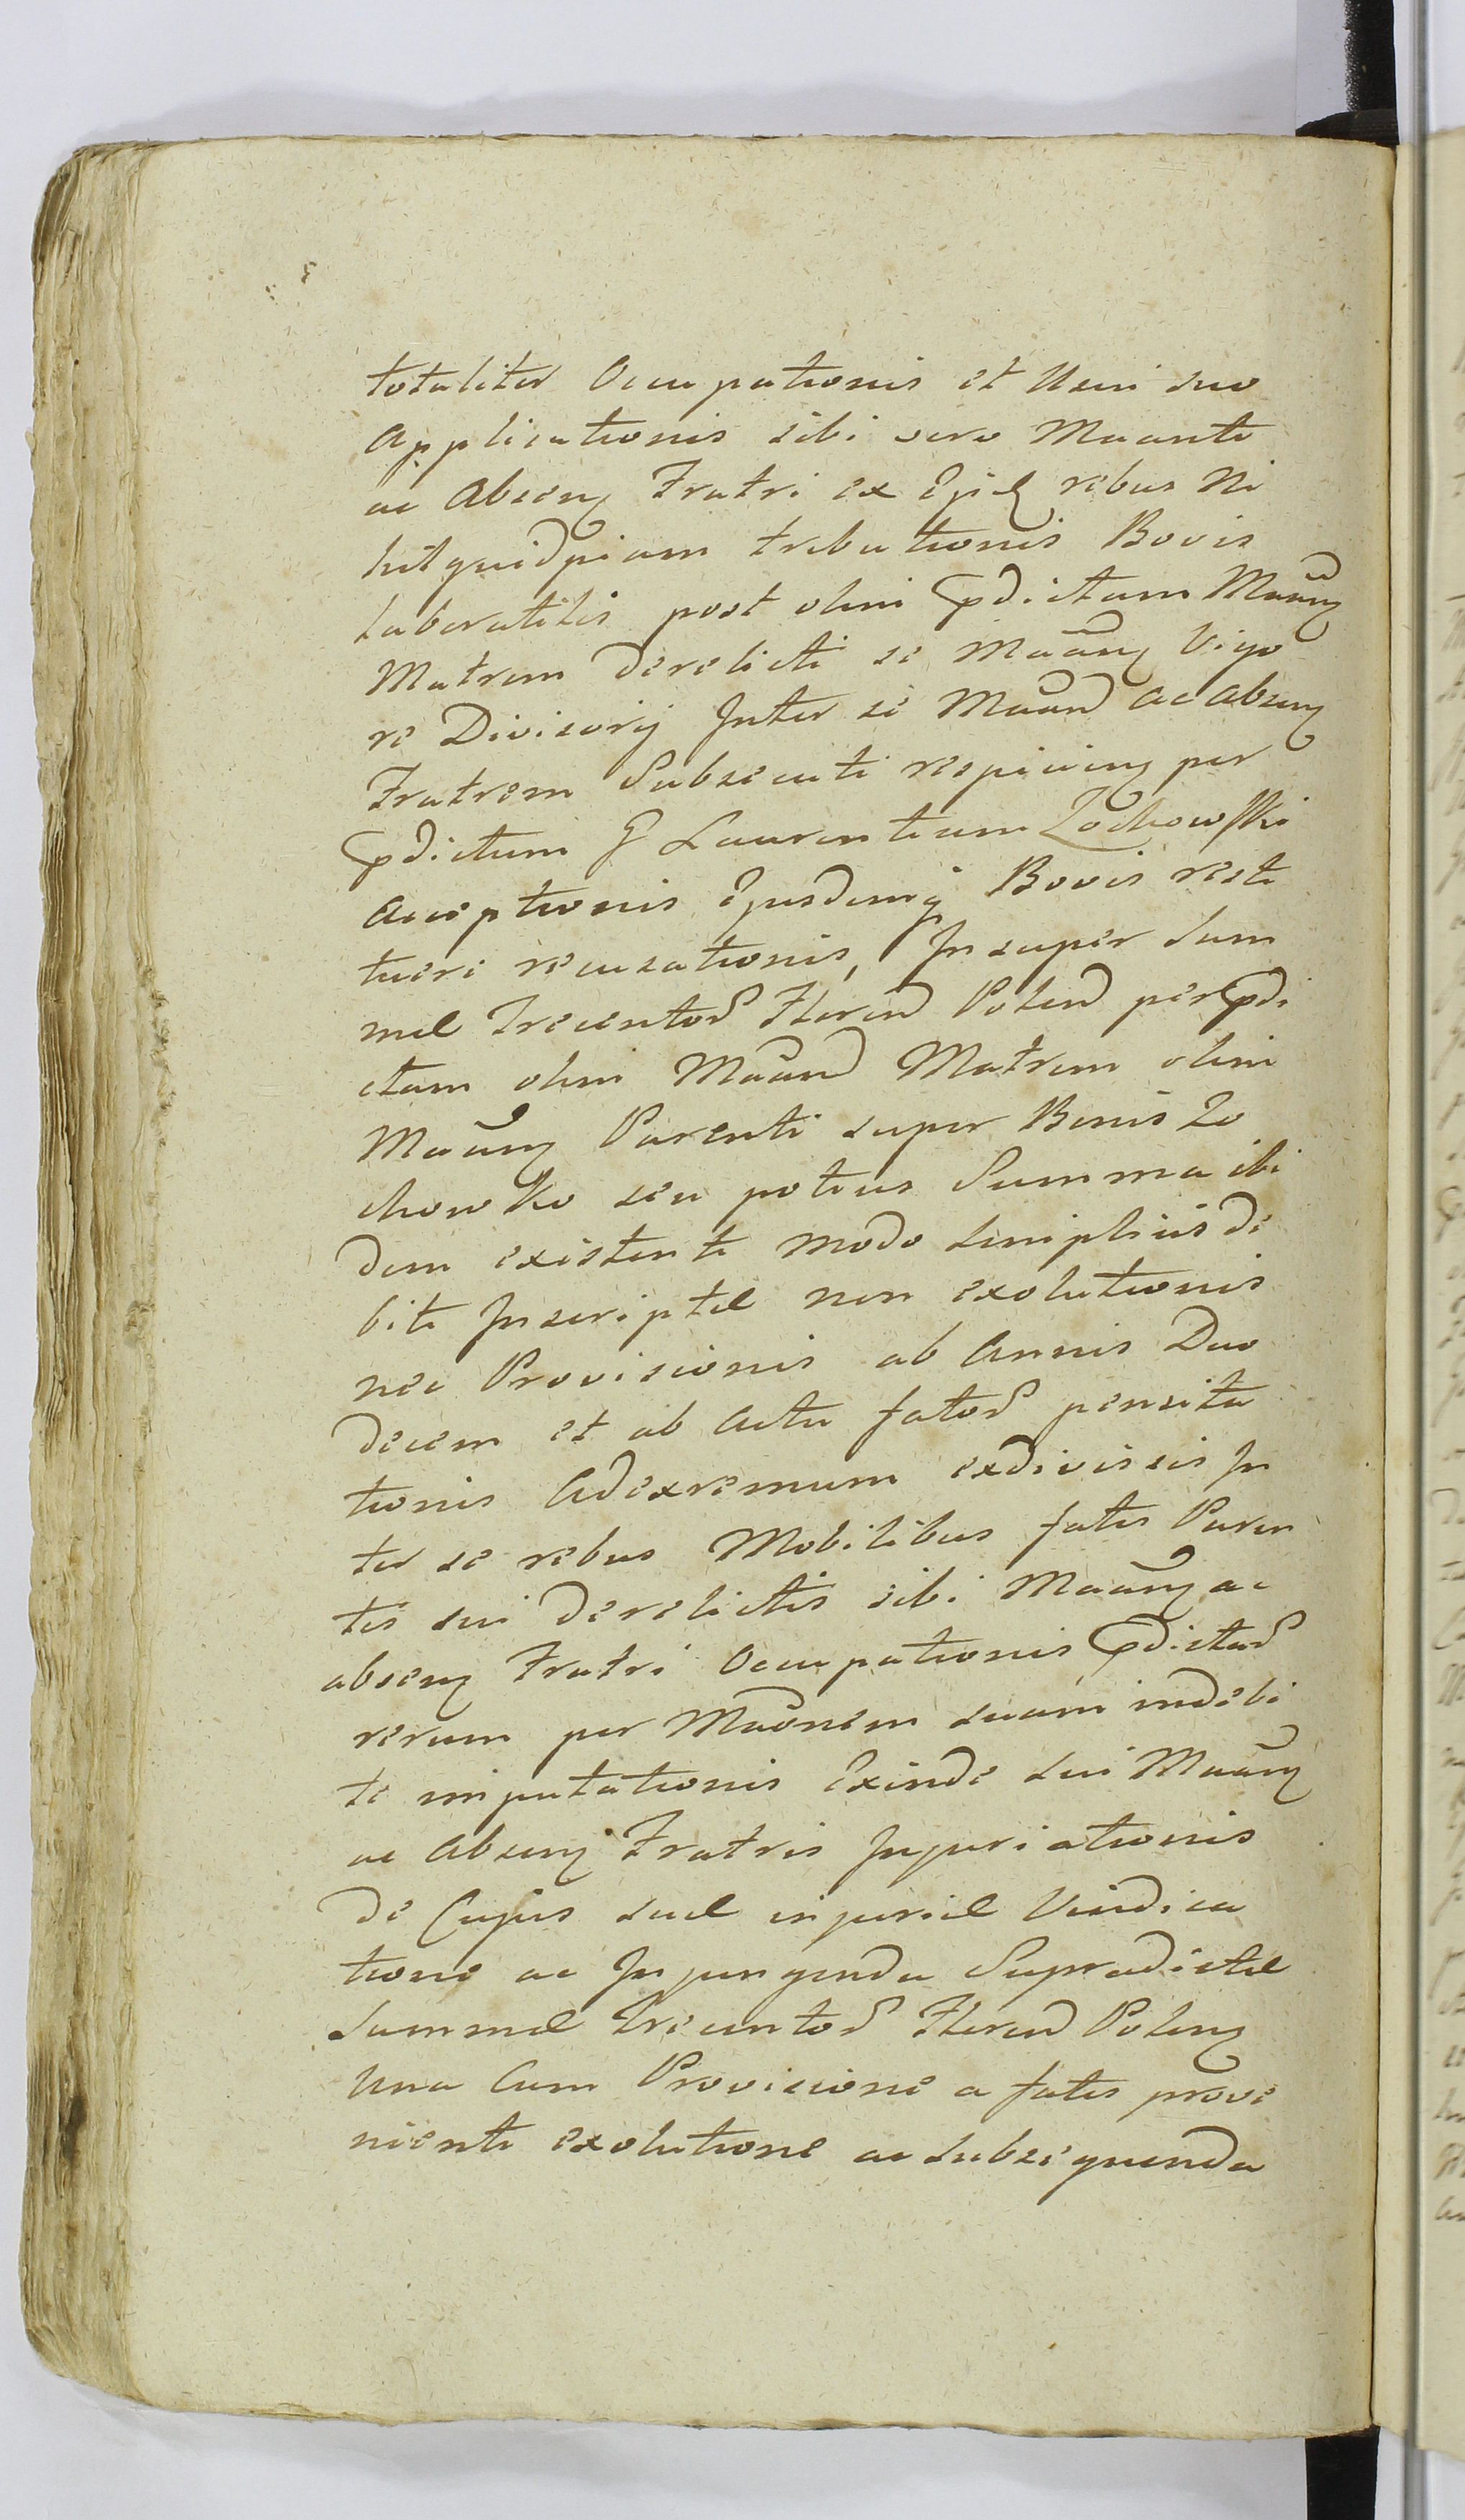 totaliter Occupationis et Usui suo
Applicationis sibi vero Maanti
ac Absen Fratri ex Ejusd rebus Ni
hil quidpiam tributionis Bovis
Laboratilis post olim Pdictam Maan
Matrem derelicti se Maan Vigo
re Divisorij Inter se Maan ac absen
Fratrem Subsecuti respicien per
Pdictum G Laurentium Zochowski
Acceptionis Ejusdemq Bovis resti
tueri recusationis, Insuper Sum
mæ Trecentor Floren Polon per Pdi
ctam olim Maan Matrem olim
Maan Parenti super Bonis Zo
chowko seu potius Summa ibi
dem existenti modo simplicis de
biti Inscriptæ non exolutionis
nec Provisionis ab Annis Duo
decem et ab Actu fator pensita
tionis Adextremum exdivisis In
ter se rebus Mobilibus fatis Paren
tis sui derelictis sibi Maan ac
absen Fratri Occupationis Pdictar
rerum per Maonem suam indebi
te imputationis Exinde sui Maan
ac Absen Fratris Injuriationis
de Cujus suæ injuriæ Vindica
tione ac Injungenda Supradictæ
Summæ Trecentor Floren Polon
Una Cum Provisione a fatis prove
nienti exolutione ac subsequenda